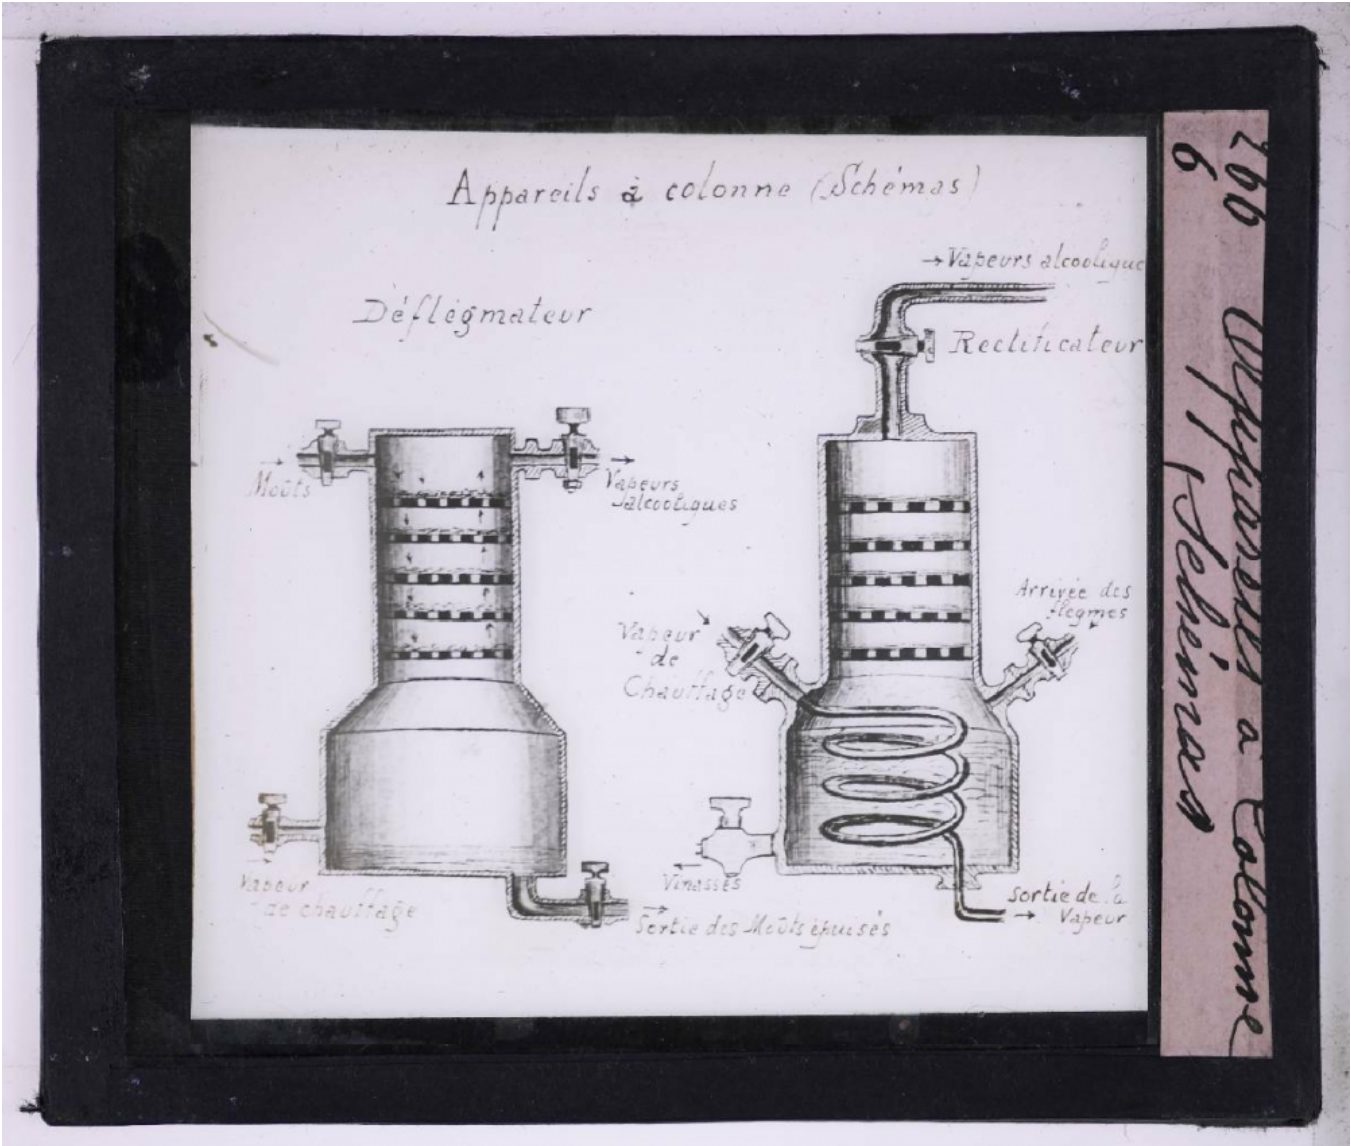 Appareils à colonne (Schémas)
Déflègmateur
Moûts
Vapeurs
alcooliques
Vapeur
de chauffage
Sortie des Moûts épuisés
→Vapeurs alcoolique
Rectificateur
Arrivée des
flegmes
Vapeur
de
Chauffage
Vinasses
Sortie de la
Vapeur
266 Appareils à Colonne
6 (Schémas